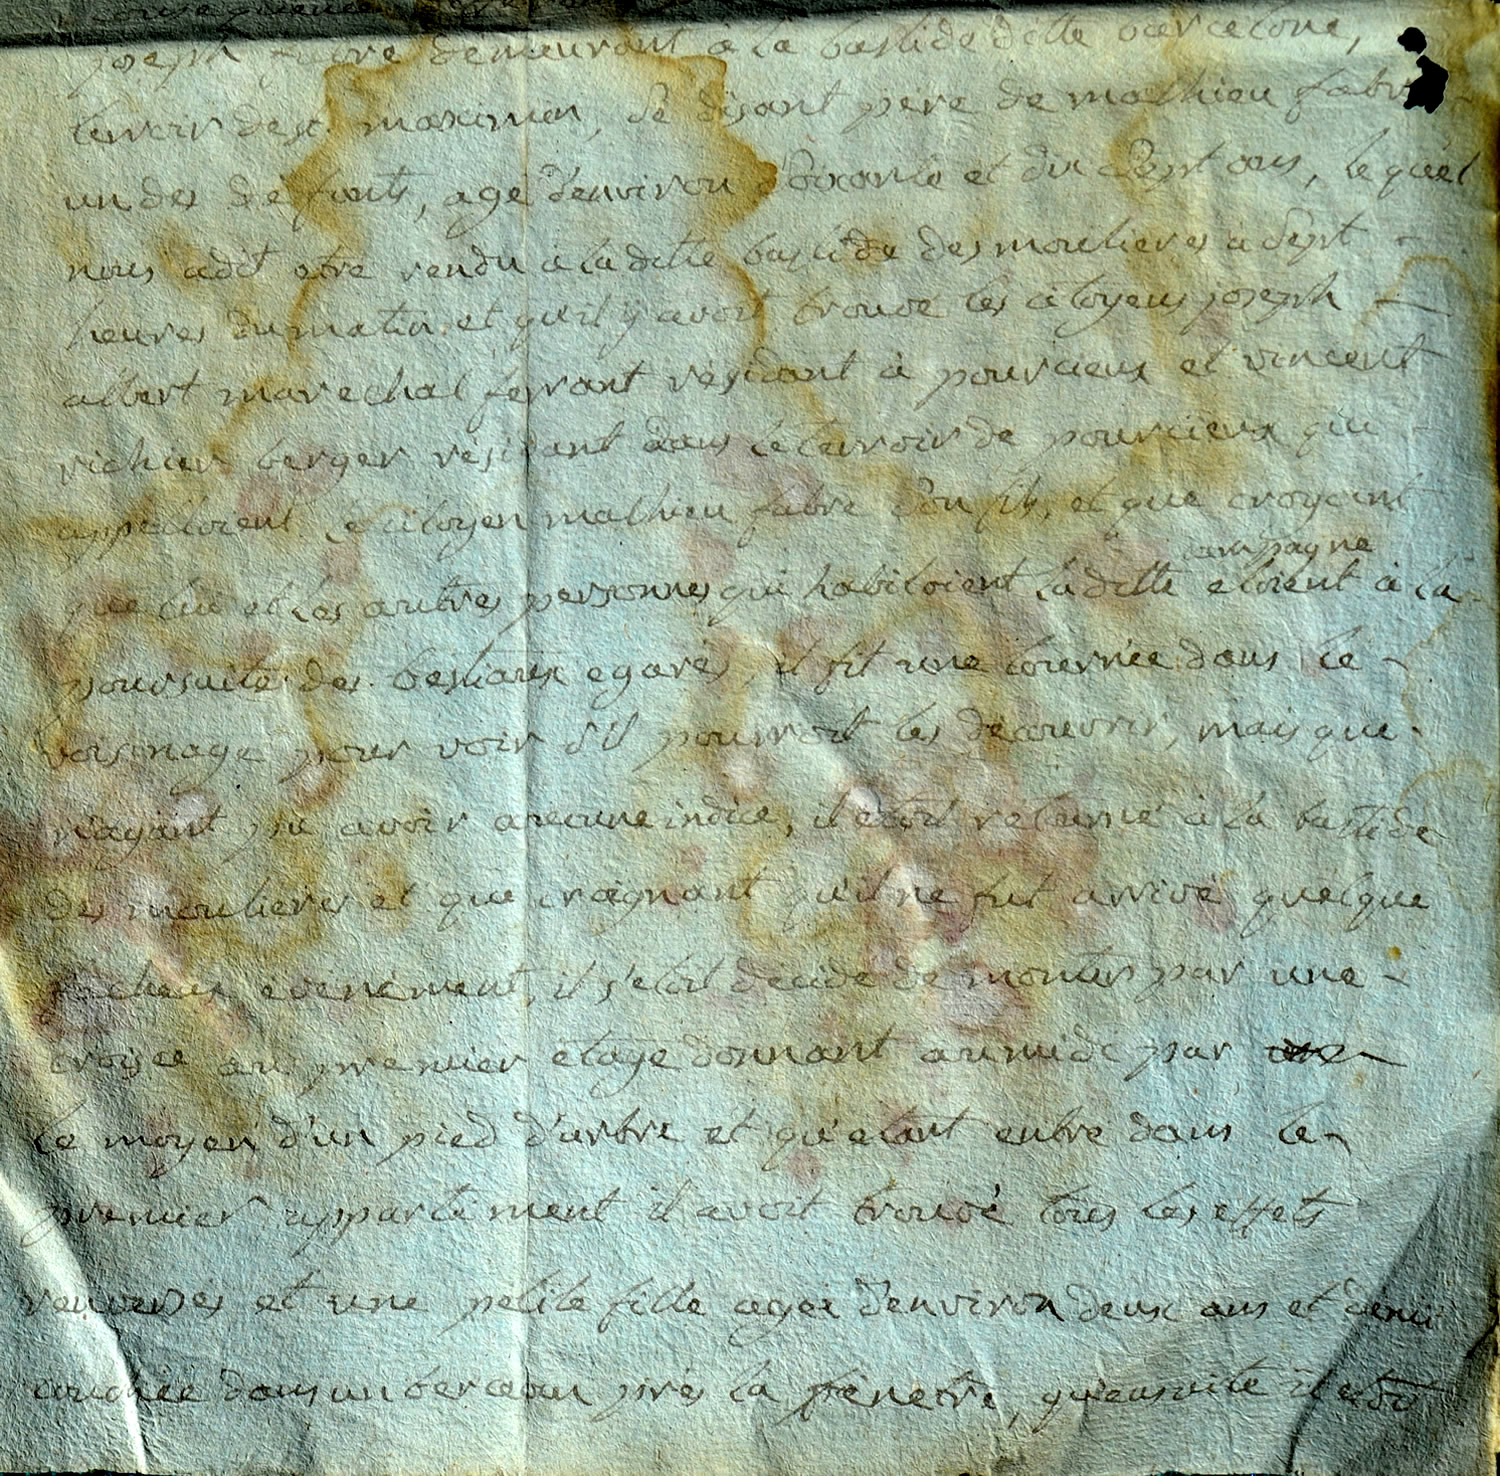 joseph fabre demeurant à la bastide ditte barcelone,
terroir de st. maximin, se disant pere de mathieu fabre
un des defunts, agé d'environ soixante et dix sept ans, lequel
nous a dit etre rendu à la ditte bastide des moulieres à sept
heures du matin et qu'il y avoit trouvé les citoyens joseph
albert marechal ferrant résidant à pourcieux et vincent
richier berger résidant dans le terroir de pourcieux qui
appelloient le citoyen mathieu fabre son fils, et que croyant
campagne
que lui et les autres personnes qui habitoient la ditte etoient à la
poursuite des bestiaux egarés, il fit une tournée dans le
voisinage pour voir s'il pourroit les découvrir, mais que
n'ayant pu avoir aucune indice, il etoit returné à la bastide
des moulieres et que craignant qu'il ne fut arrivé quelque
facheux evenement, il s'etoit decidé de monter par une
croisée au premier etage donnant au midi par
le moyen d'un pied d'arbre et qu'etant entré dans le
premier appartement il avoit trouvé tous les effets
renversés et une petite fille agée d'environ deux ans et demi
couchée dans un berceau près la fenetre, qu'ensuite il